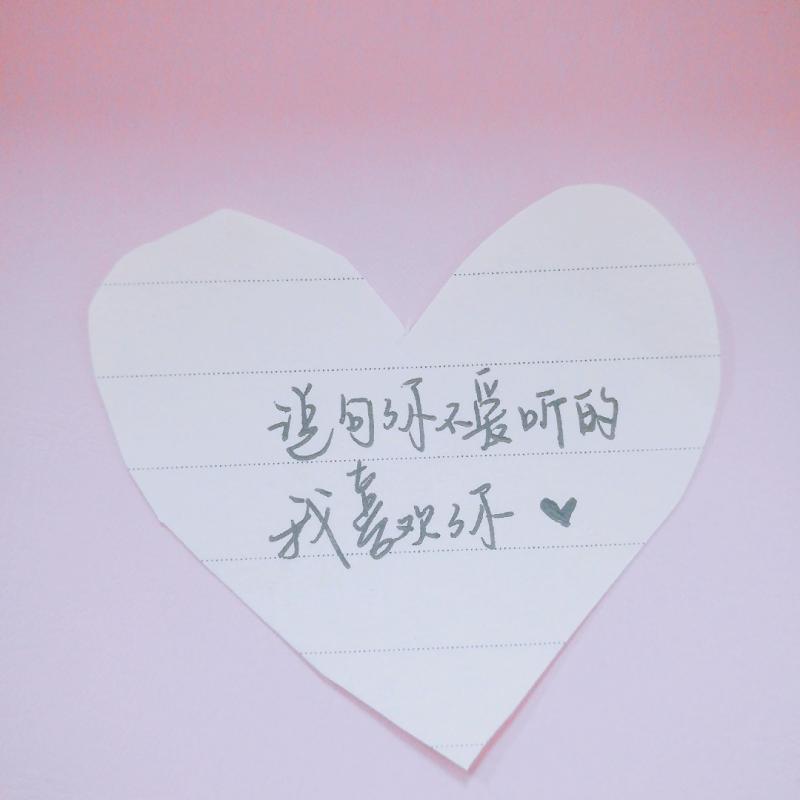 说句你不爱听的
我喜欢你♥